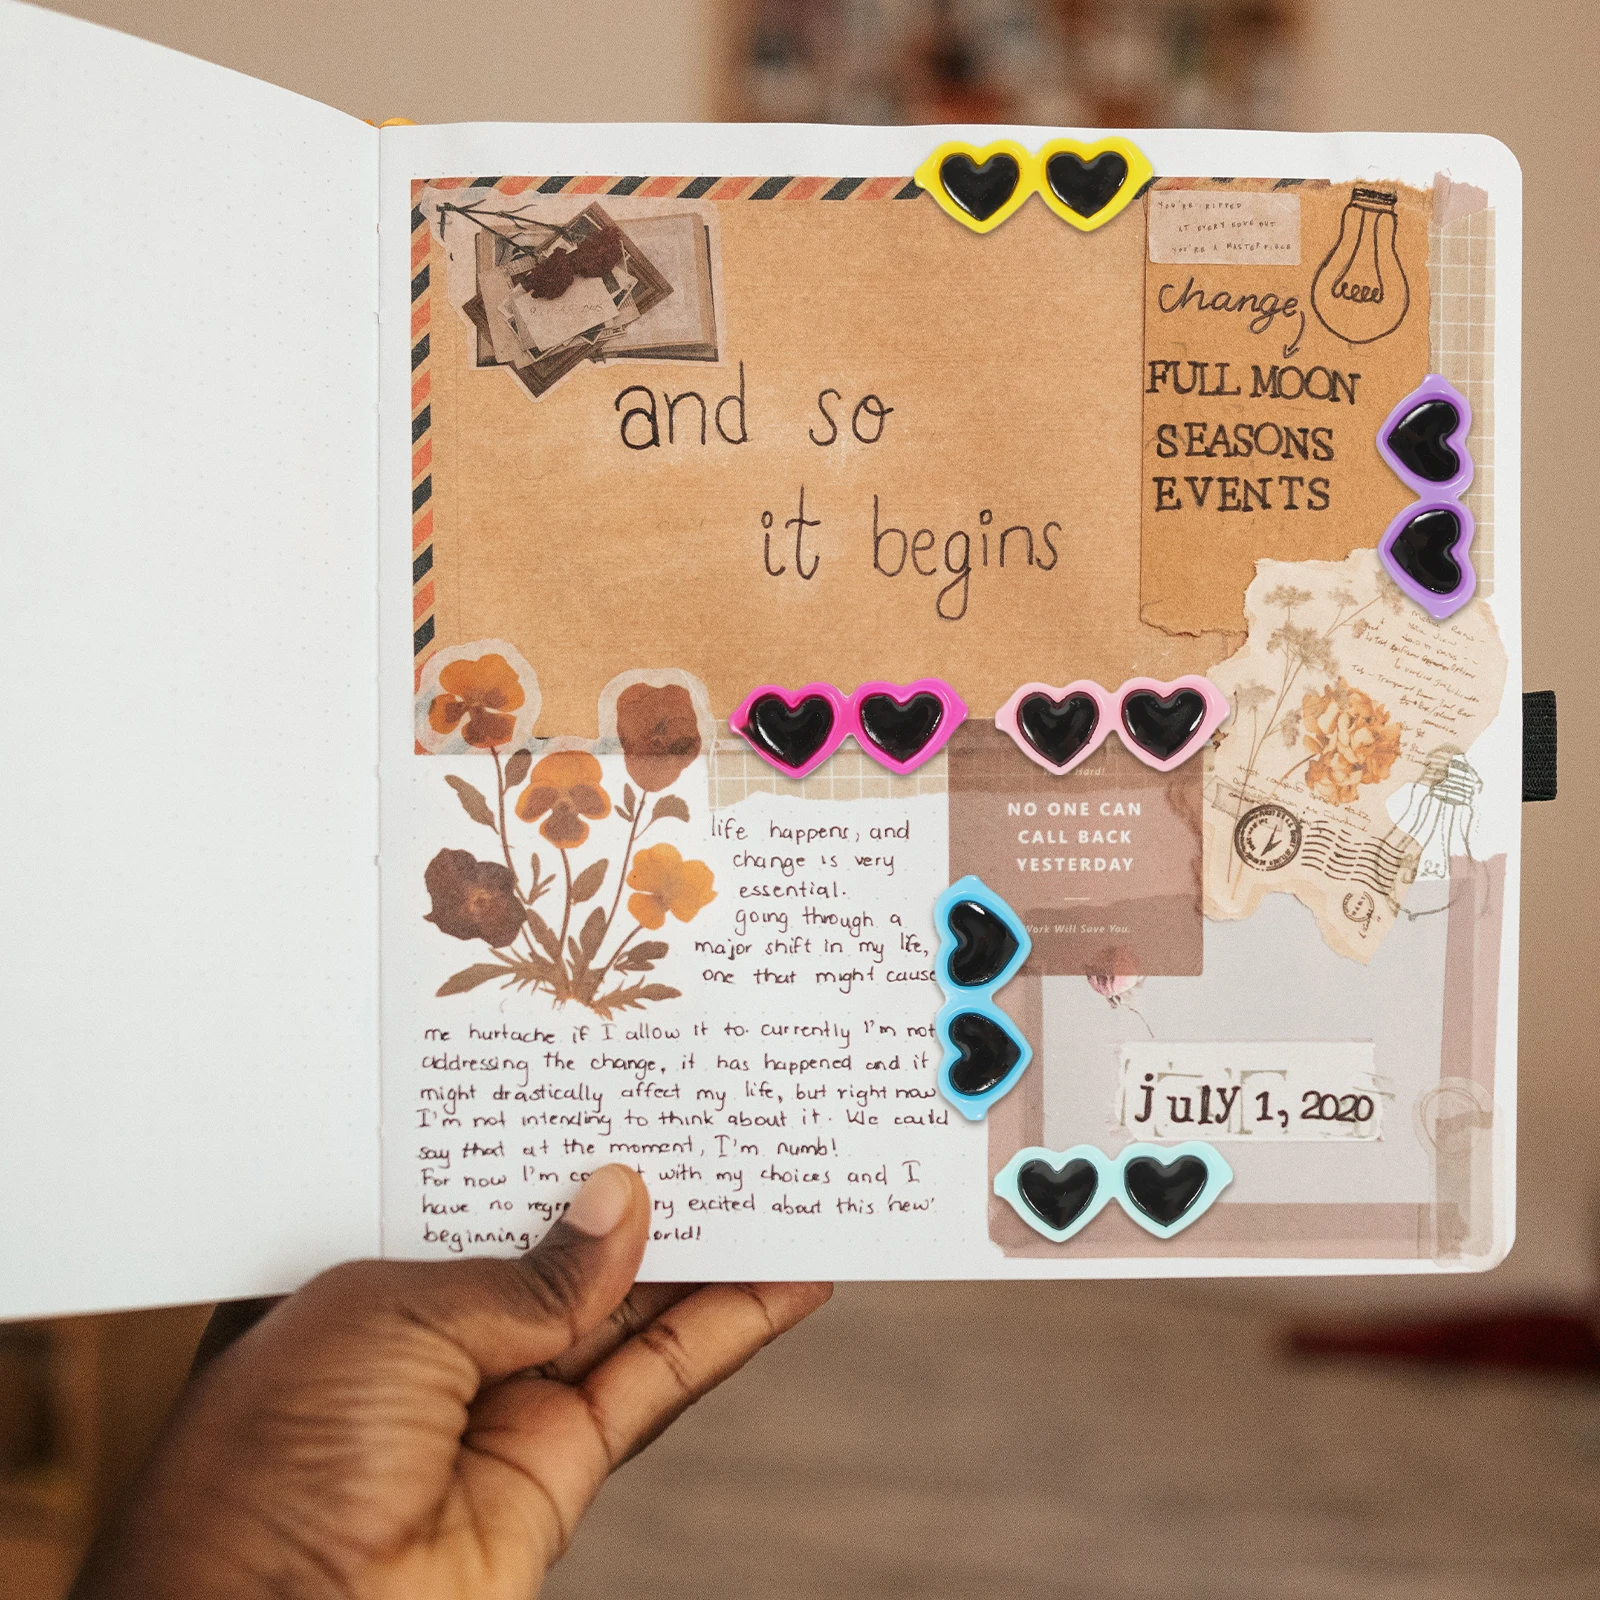 YOU'RE RIPPED
AT EVERY EDGE BUT
YOU'RE A MASTERPIECE
change,
FULL MOON
SEASONS
EVENTS
and so
it begins
Hard!
NO ONE CAN
CALL BACK
YESTERDAY
Work Will Save You.
life happens, and
change is very
essential.
going through a
major shift in my life,
one that might cause
me hurtache if I allow it to. currently I'm not
addressing the change, it has happened and it
might drastically affect my life, but right now
I'm not intending to think about it. We could
say that at the moment, I'm numb!
For now I'm with my choices and I
have no excited about this 'new'
beginning.
july 1, 2020